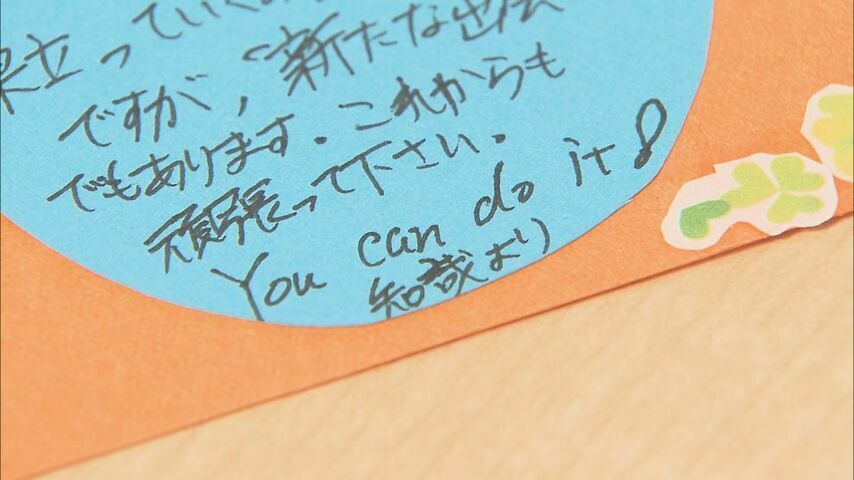 立っていく
ですが、新たな出会
でもあります。これからも
頑張って下さい。
You can do it!
知哉より